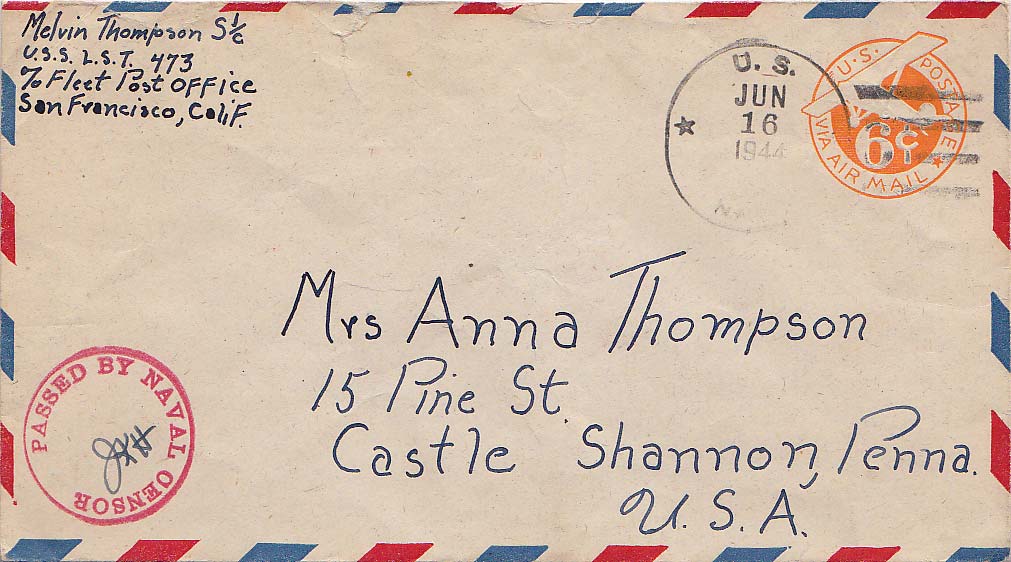 Melvin Thompson S 1/c
U.S.S. L.S.T. 473
c/o Fleet Post Office
San Francisco, Calif.
U. S.
JUN
16
1944
U.S. POSTAGE
6¢
VIA AIR MAIL
Mrs Anna Thompson
15 Pine St.
Castle Shannon, Penna.
U.S.A.
PASSED BY NAVAL CENSOR